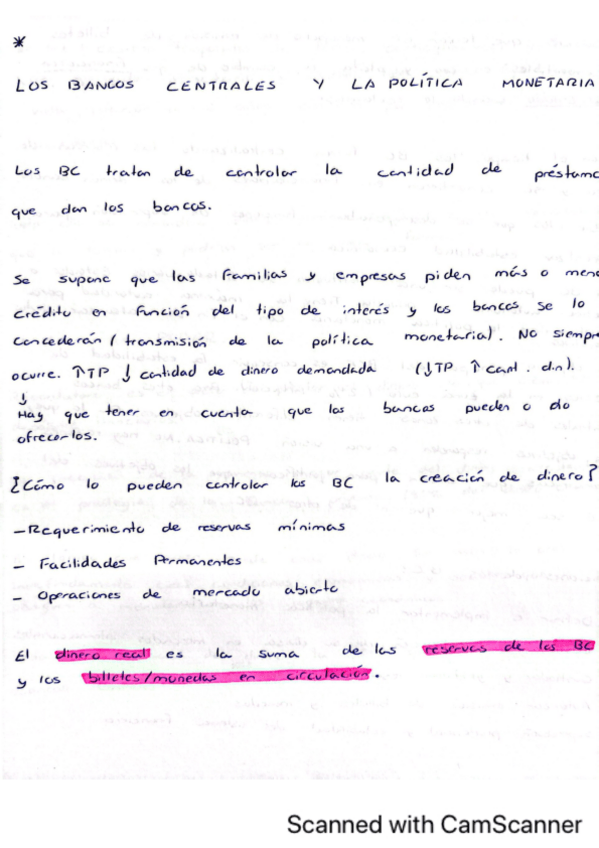 *
LOS BANCOS CENTRALES Y LA POLÍTICA MONETARIA
Los BC tratan de controlar la cantidad de préstamo
que dan los bancos.
Se supone que las familias y empresas piden más o meno
crédito en función del tipo de interés y los bancos se lo
concederán (transmisión de la política monetaria). No siempre
ocurre. ↑TP ↓ cantidad de dinero demandada (↓TP ↑ cant. din).
↓
Hay que tener en cuenta que los bancos pueden o no
ofrecerlos.
¿Cómo lo pueden controlar los BC la creación de dinero?
- Requerimiento de reservas mínimas
- Facilidades Permanentes
- Operaciones de mercado abierto
El dinero real es la suma de las reservas de los BC
y los billetes/monedas en circulación.
Scanned with CamScanner